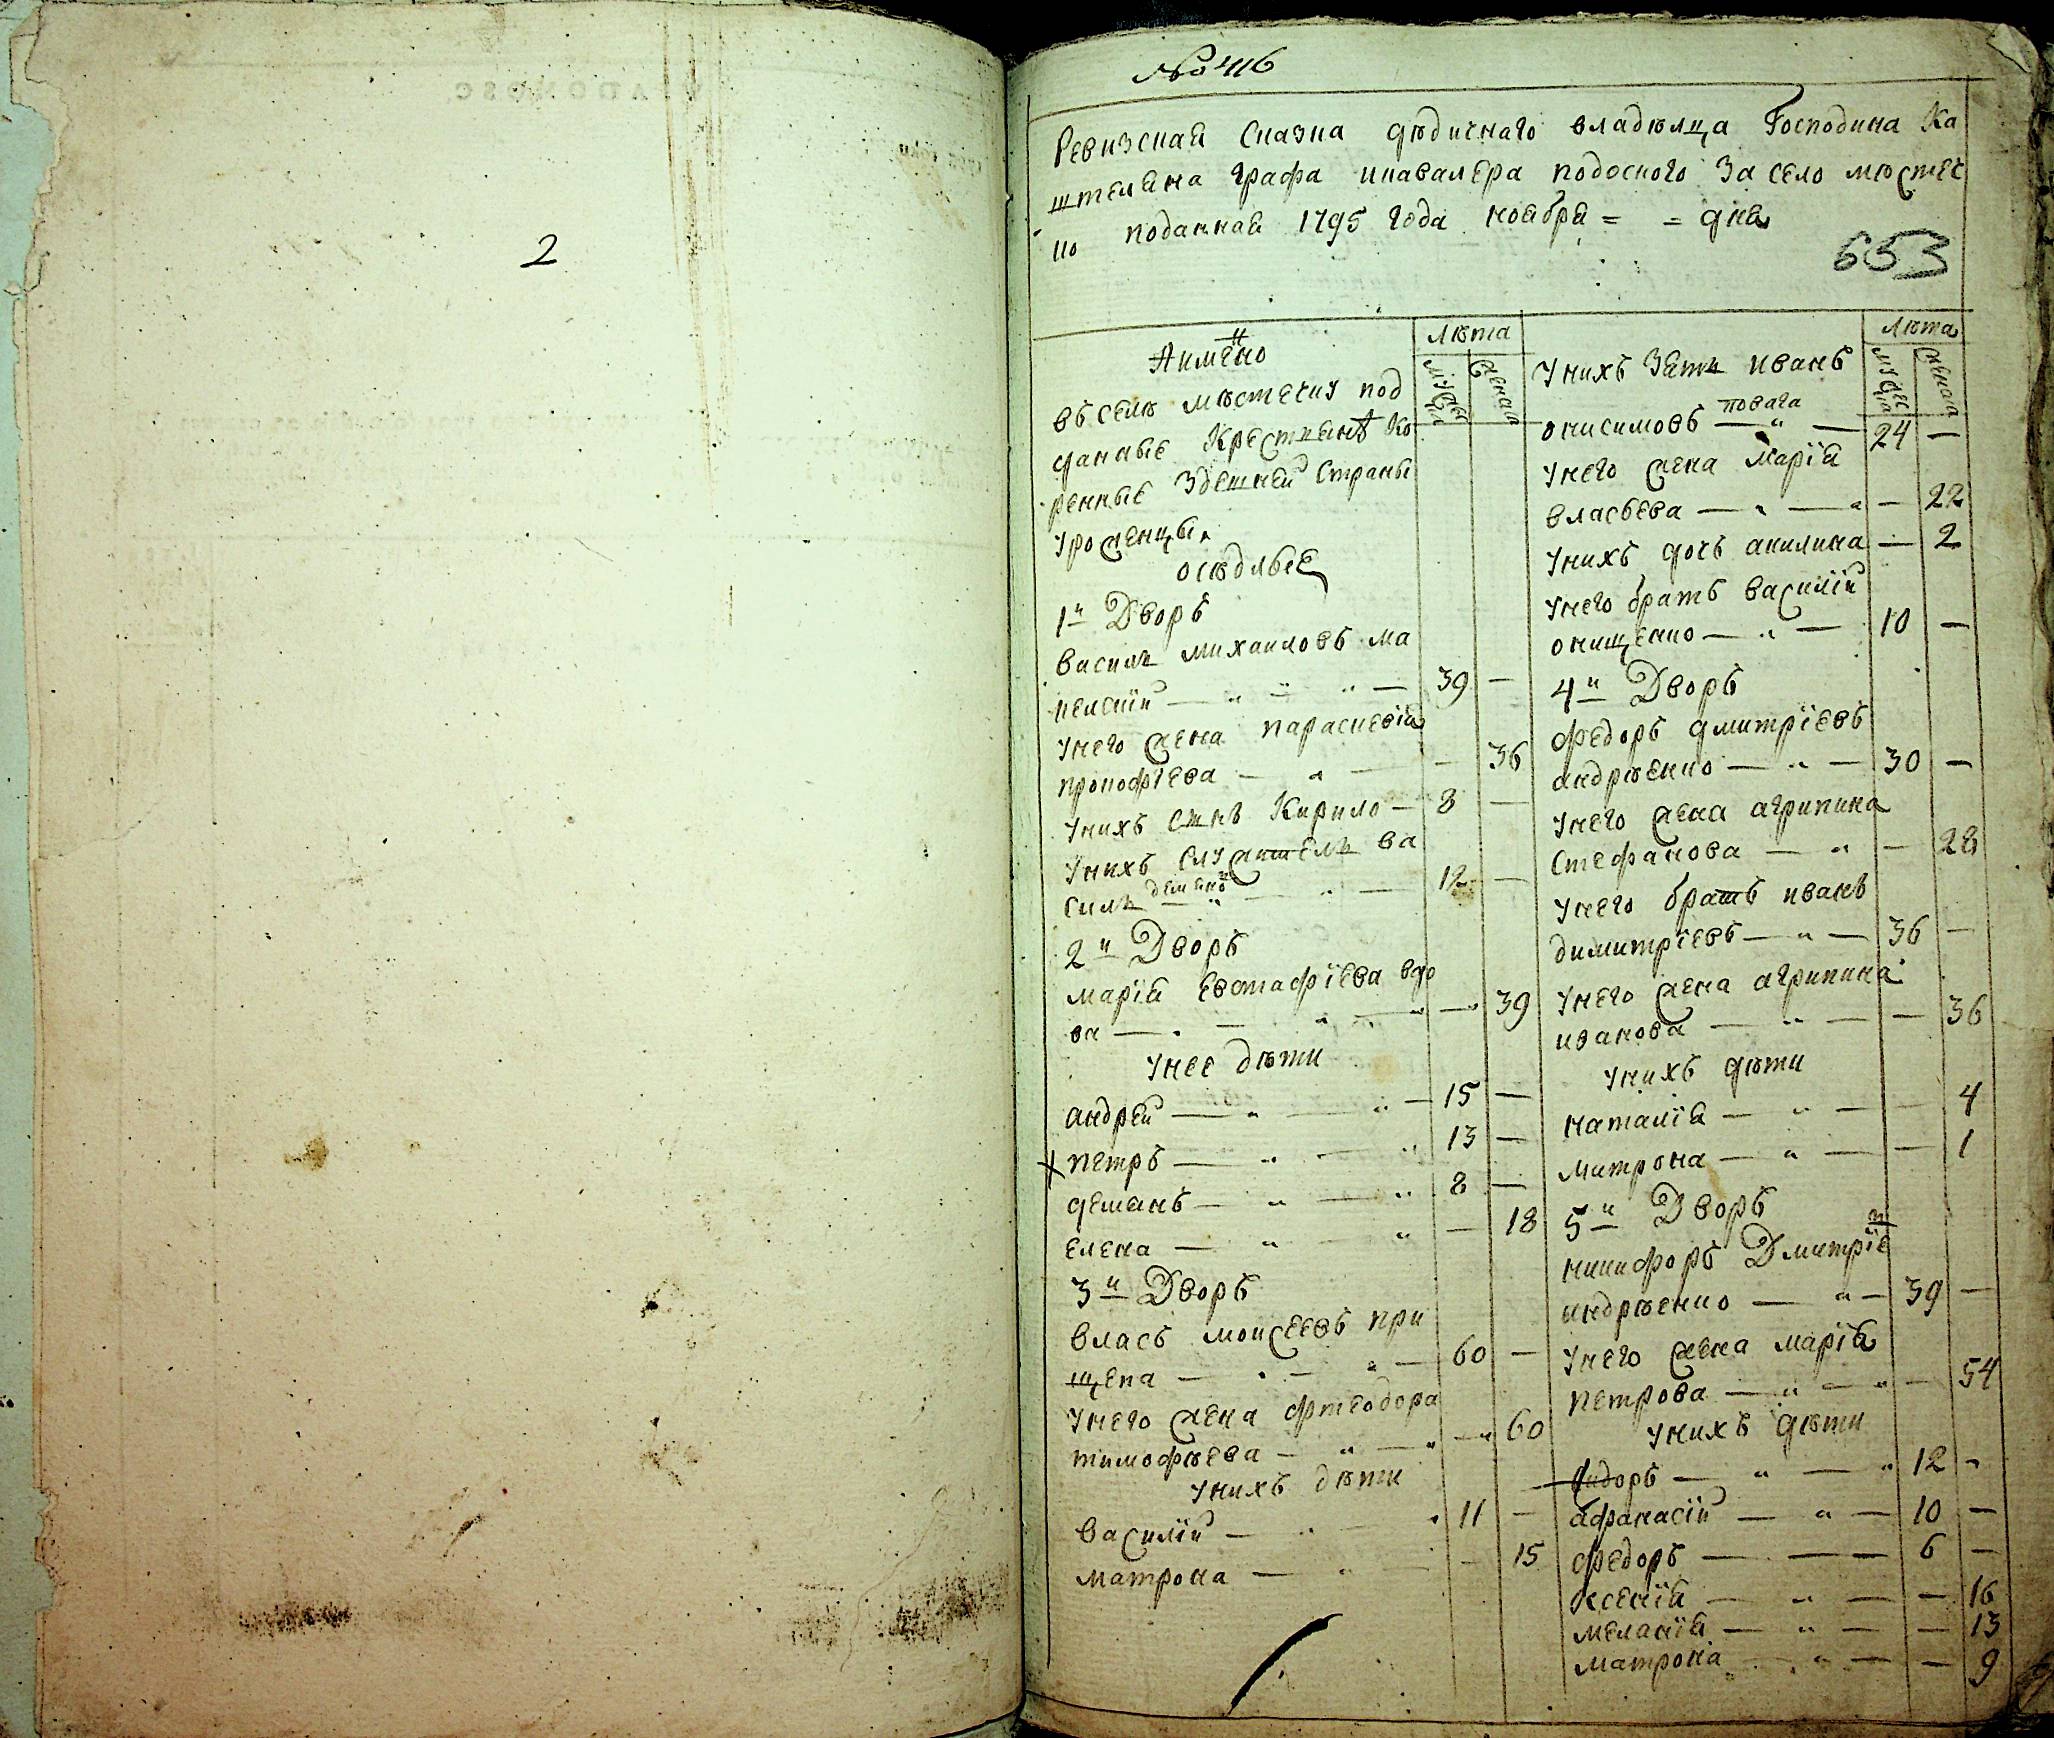 2
No 416
Ревизская Сказка дѣдичнаго владѣлца Господина Ка
штеляна графа икавалера подоского За село мѣстеч
ко поданная 1795 года ноября = = дня
653
Аимено
Лѣта
мужеска
женска
въ селѣ мѣстечку под
данные Крестьянъ Ко
ренные Здешней Страны
уроженцы.
осѣдлые
1й Дворъ
василь михаиловъ ма
39 —
унего жена параскевія
прокофіева — — 36
унихъ сынъ Кирило — 8 —
унихъ служитель ва
силь демено 12 —
2й Дворъ
марія Евстафіева вдо
ва — — — 39
унее дѣти
андрей — — 15 —
петръ — — 13 —
демянъ — — 8 —
елена — — — 18
3й Дворъ
власъ моисеевъ при
щепа — — 60 —
унего жена фтеодора
тимофѣева — — — 60
унихъ дѣти
василій — 11 —
матрона — — 15
Лѣта
мужеска
женска
унихъ Зять иванъ
онисимовъ повага — 24 —
унего жена марія
власьева — — — 22
унихъ дочь акилина — 2
унего братъ василій
онищенко — — 10 —
4й Дворъ
федоръ дмитріевъ
андрѣенко — — 30 —
унего жена агрипина
стефанова — — 28
унего братъ иванъ
димитріевъ — — 36 —
унего жена агрипина
иванова — — — 36
унихъ дѣти
наталія — — — 4
митрона — — — 1
5й Дворъ
никифоръ Дмитріе
андрѣенко — — 39 —
унего жена марія
петрова — — — 54
унихъ дѣти
сидоръ — — 12 -
афанасій — — 10 —
федоръ — — 6 —
ксенія — — — 16
меланія — — — 13
матрона — — — 9